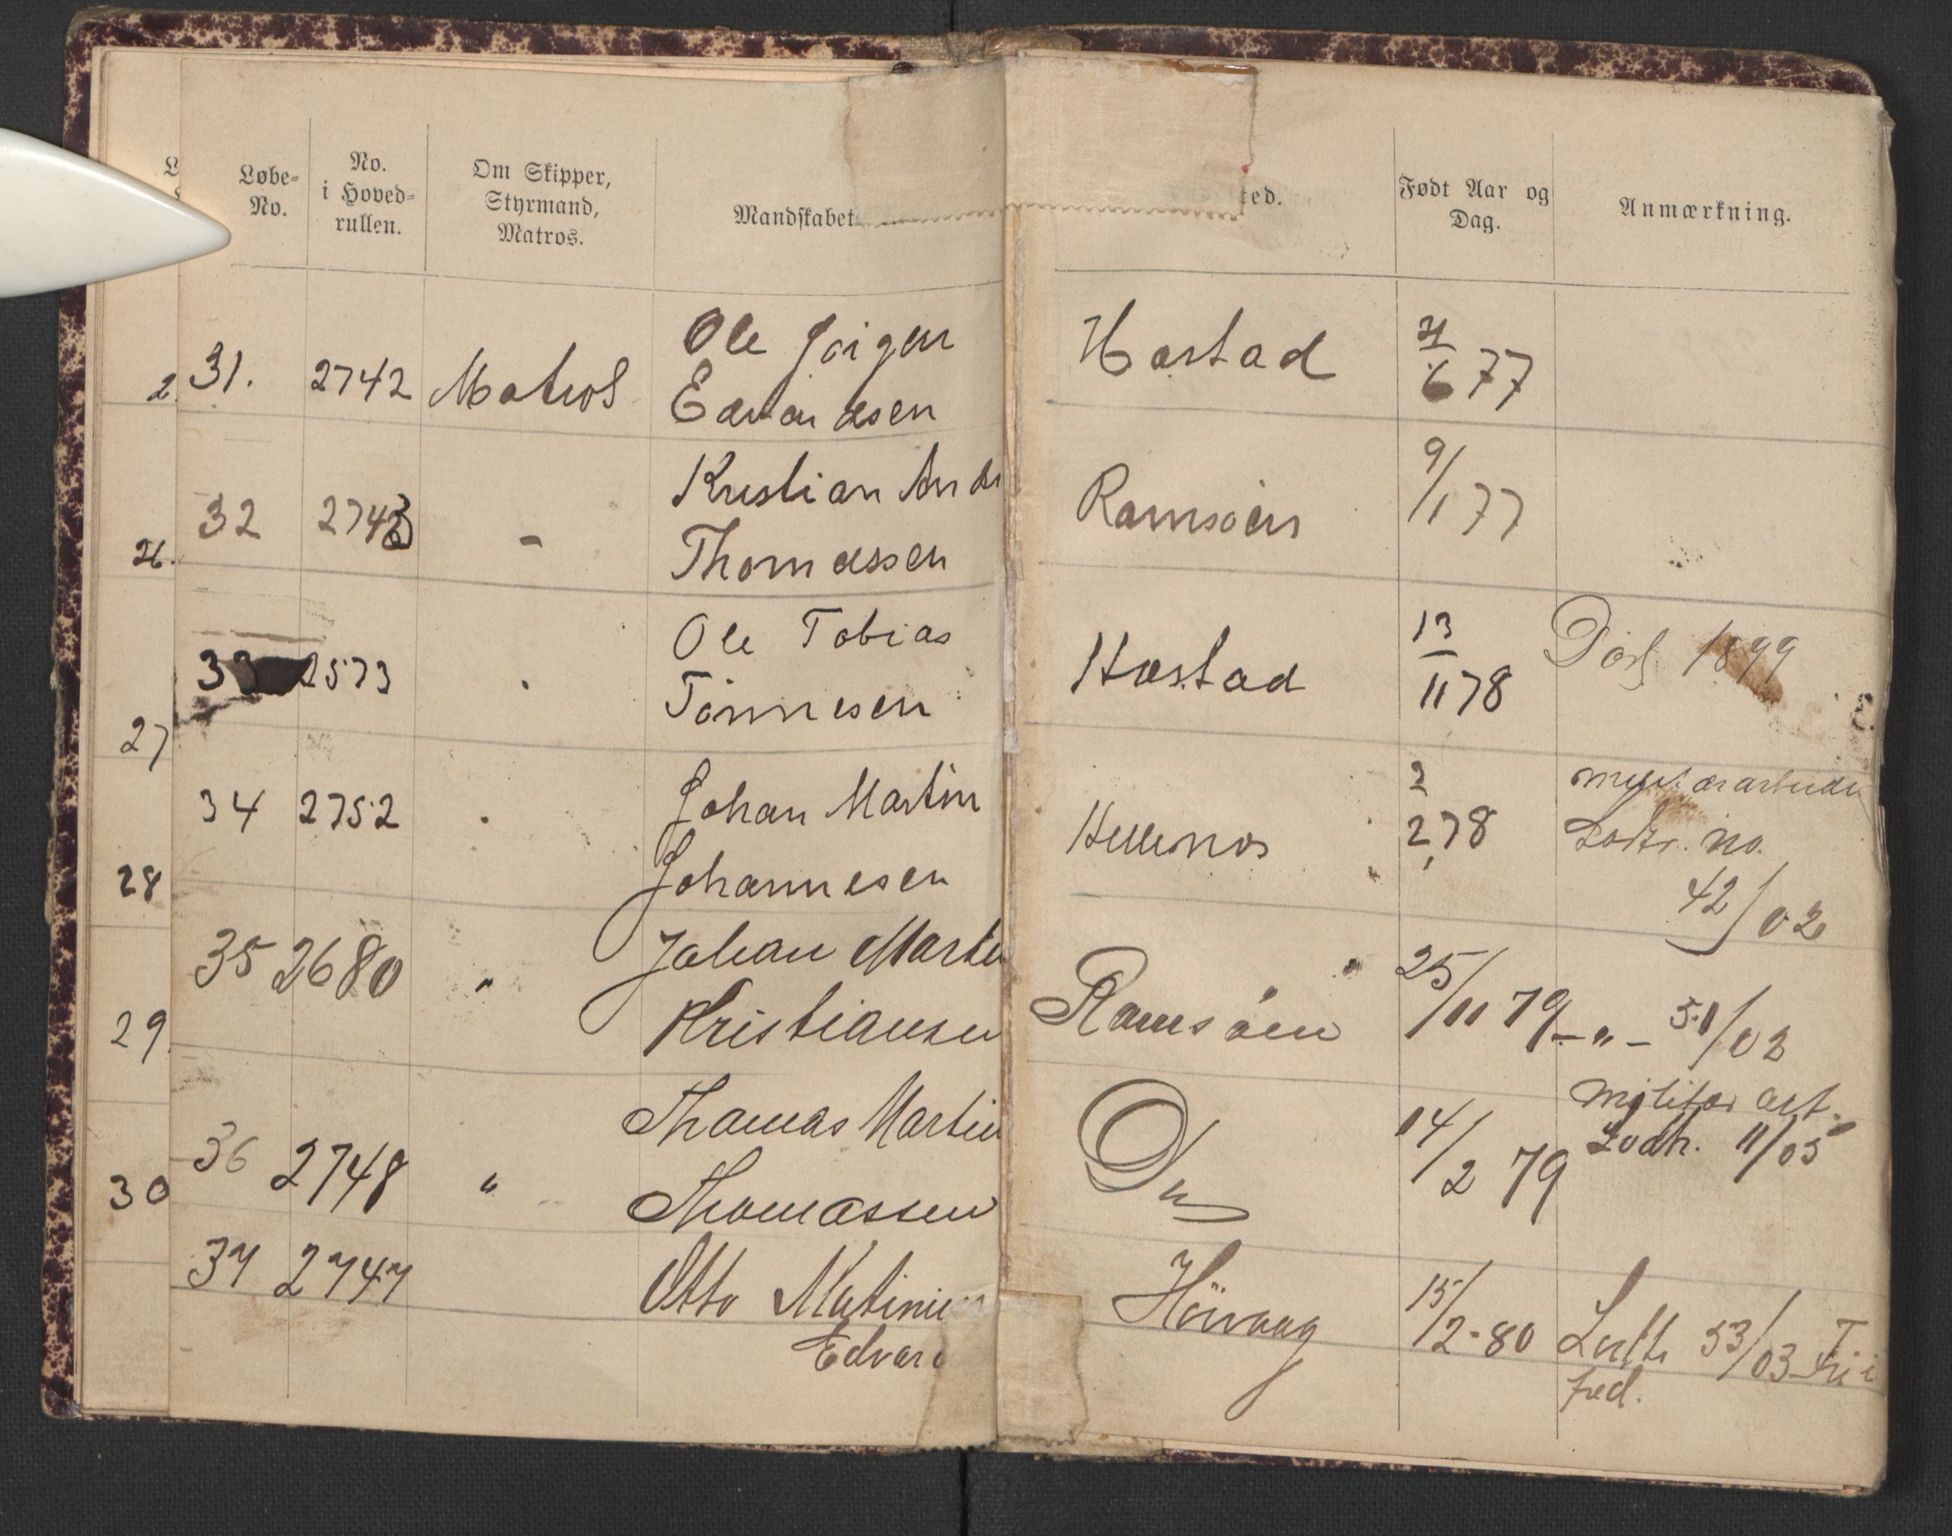 Løbe-
No.
No.
i Hoved-
rullen.
Om Skipper,
Styrmand,
Matros.
Mandskabet
ted.
Født Aar og
Dag.
Anmærkning.
31. 2742 Matros Ole Jørgen
Edvardsen
Hæstad 21/6 77
32 2743 - Kristian Andr
Thomassen
Ramsøen 9/1 77
33 2573 . Ole Tobias
Tönnesen
Hæstad 13/11 78 Död 1899
34 2752 . Johan Martin
Johannesen
Hellenos 2/2 78
no.
42/02
35 2680 " Johan Martin
Kristiansen
Ramsöen 25/11 79 - " - 51/02
36 2748 " Thomas Martin
Thomassen
Do 14/2 79 militær
Lodtr. 11/05
37 2747 Otto
Edvard
Höivaag 15/2-80 Lodtr 53/03 Fri i
fred.
27
28
29
30